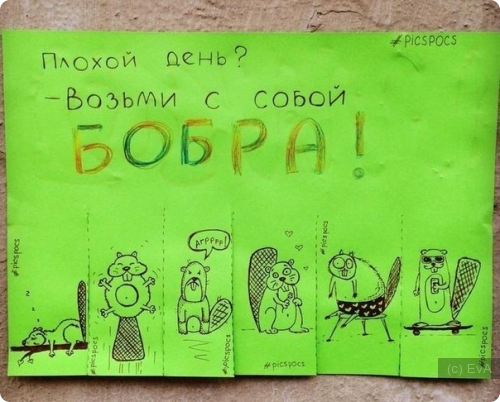 #PICSPOCS
Плохой день?
– Возьми с собой
БОБРА!
#picspocs
#picspocs
АГРРРР!
#picspocs
#picspocs
#picspocs
#picspocs
z
(c) EvA